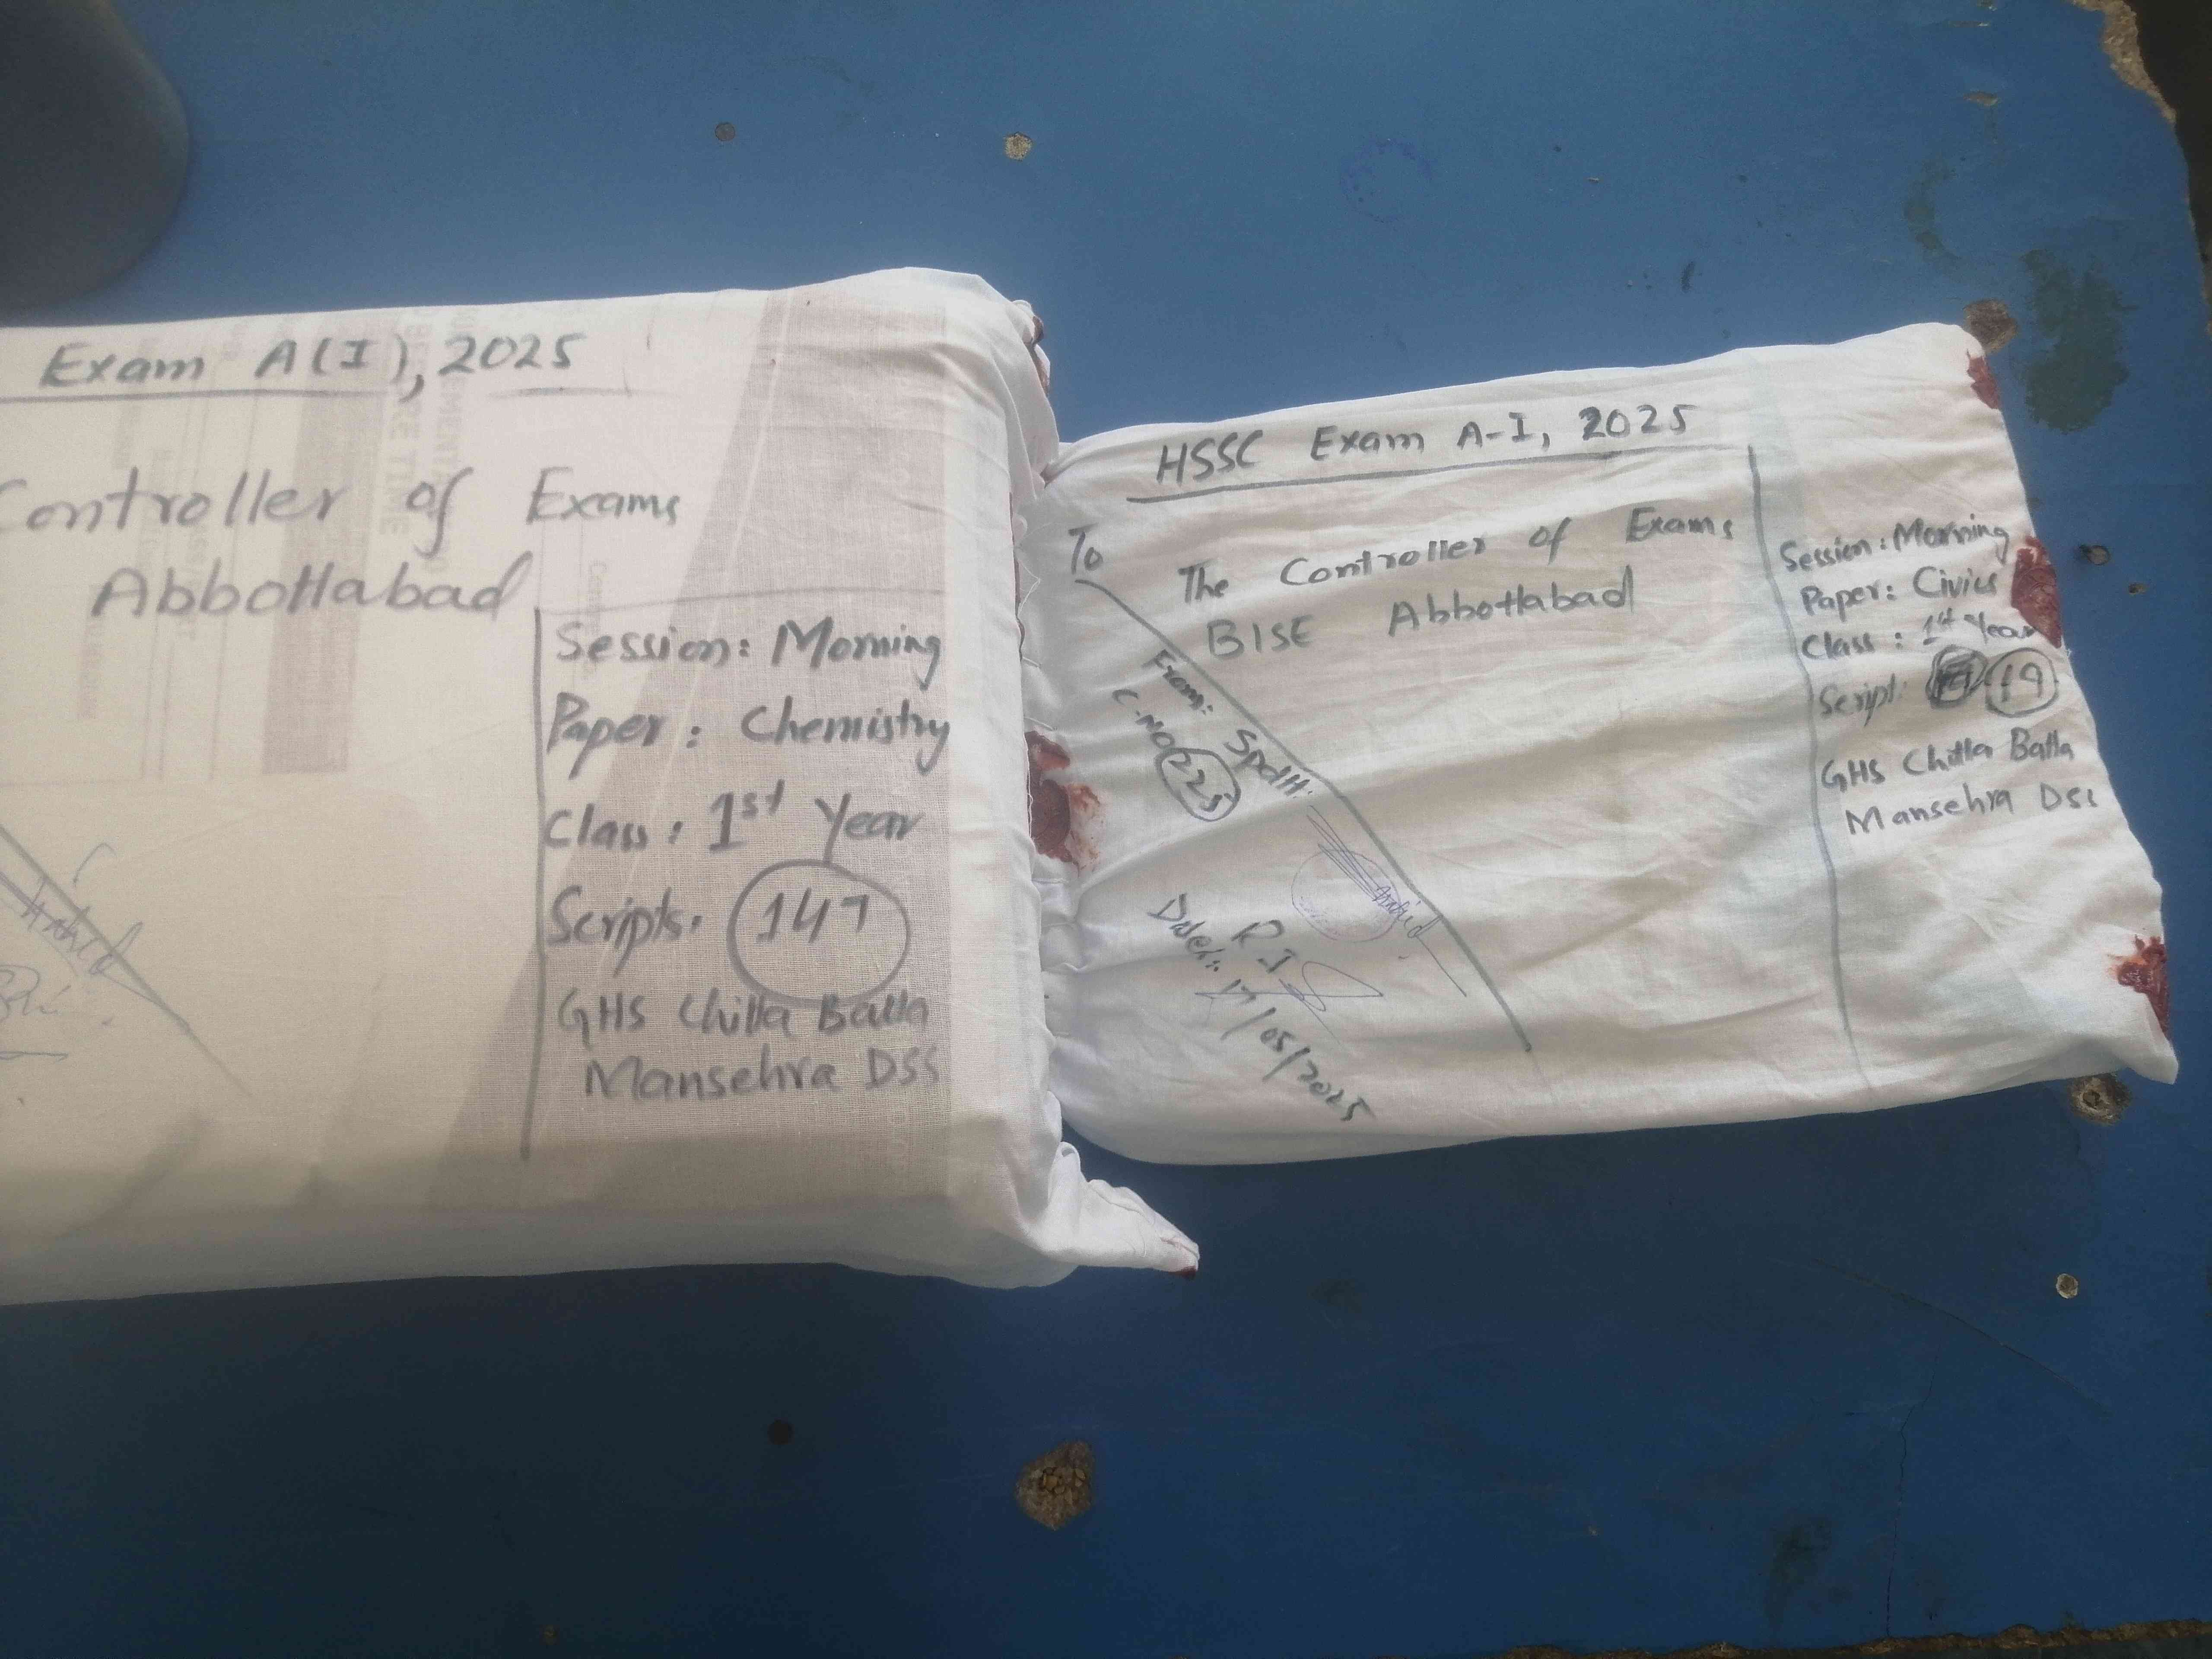 Exam A(I), 2025
Controller of Exams
Abbottabad
Session: Morning
Paper: Chemistry
Class: 1st Year
Scripts. 147
GHS Chitta Batta
Mansehra DSS
HSSC Exam A-I, 2025
To
The Controller of Exams
BISE Abbottabad
From: Spdtt:
C-No 225
R.I
Dated: 17/05/2025
Session: Morning
Paper: Civics
Class: 1st Year
Script: 19
GHS Chitta Batta
Mansehra DSS